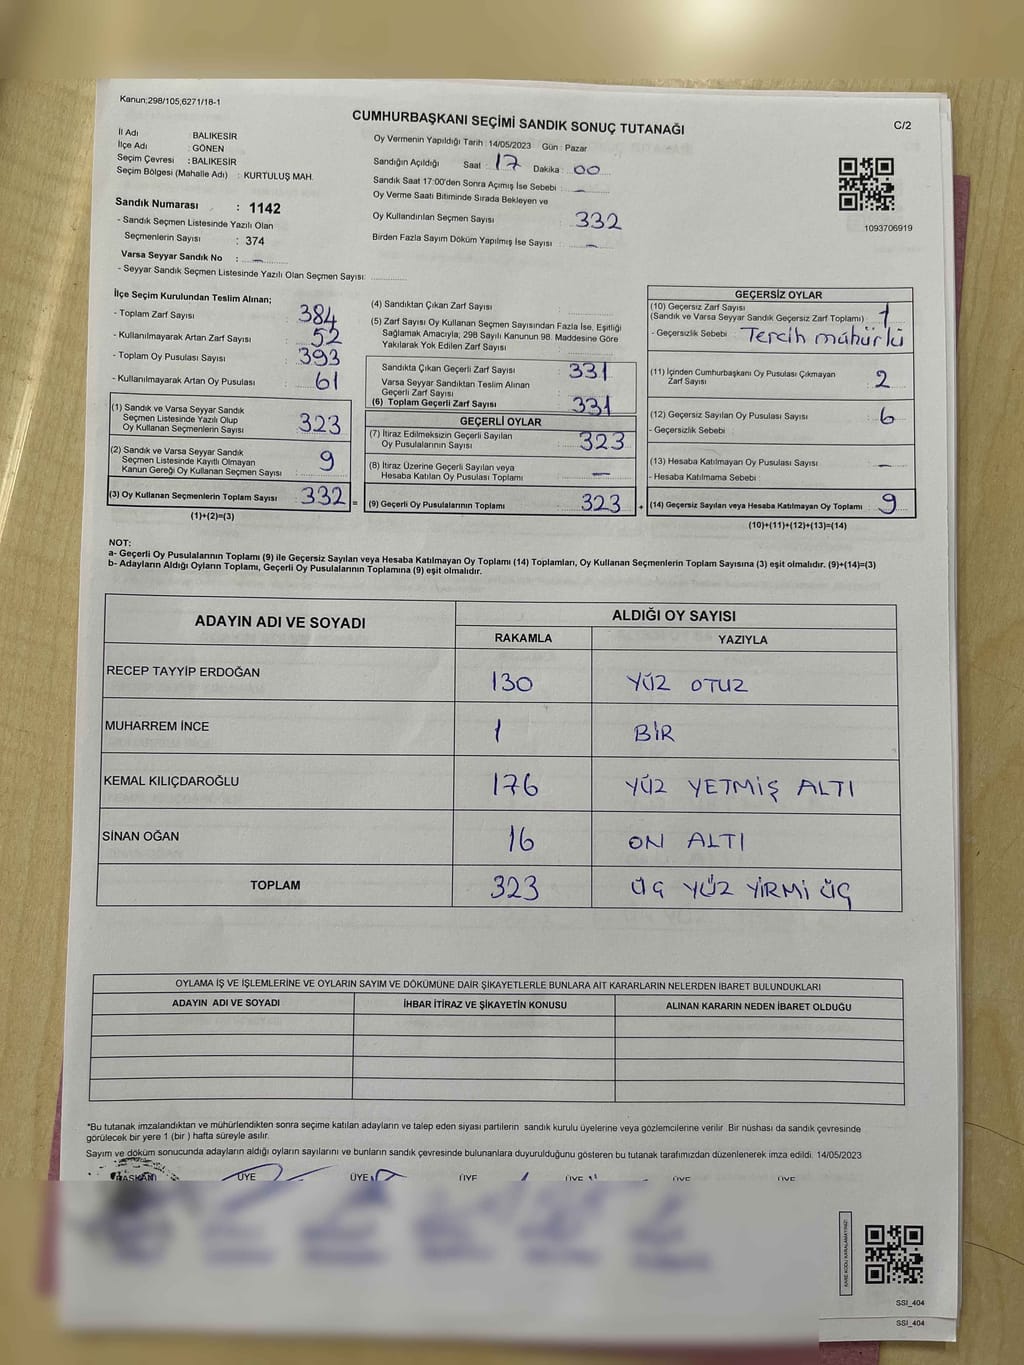 Kanun;298/105,6271/18-1
CUMHURBAŞKANI SEÇİMİ SANDIK SONUÇ TUTANAĞI
C/2
İl Adı : BALIKESİR
İlçe Adı : GÖNEN
Seçim Çevresi : BALIKESİR
Seçim Bölgesi (Mahalle Adı) : KURTULUŞ MAH.
Sandık Numarası : 1142
- Sandık Seçmen Listesinde Yazılı Olan
Seçmenlerin Sayısı : 374
Varsa Seyyar Sandık No : –
- Seyyar Sandık Seçmen Listesinde Yazılı Olan Seçmen Sayısı:
Oy Vermenin Yapıldığı Tarih : 14/05/2023 Gün : Pazar
Sandığın Açıldığı Saat : 17 Dakika : 00
Sandık Saat 17:00'den Sonra Açımış İse Sebebi : –
Oy Verme Saati Bitiminde Sırada Bekleyen ve
Oy Kullandırılan Seçmen Sayısı : 332
Birden Fazla Sayım Döküm Yapılmış İse Sayısı : –
1093706919
İlçe Seçim Kurulundan Teslim Alınan;
- Toplam Zarf Sayısı : 384
- Kullanılmayarak Artan Zarf Sayısı : 52
- Toplam Oy Pusulası Sayısı : 393
- Kullanılmayarak Artan Oy Pusulası : 61
(1) Sandık ve Varsa Seyyar Sandık
Seçmen Listesinde Yazılı Olup
Oy Kullanan Seçmenlerin Sayısı : 323
(2) Sandık ve Varsa Seyyar Sandık
Seçmen Listesinde Kayıtlı Olmayan
Kanun Gereği Oy Kullanan Seçmen Sayısı : 9
(3) Oy Kullanan Seçmenlerin Toplam Sayısı : 332 =
(1)+(2)=(3)
(4) Sandıktan Çıkan Zarf Sayısı :
(5) Zarf Sayısı Oy Kullanan Seçmen Sayısından Fazla İse, Eşitliği
Sağlamak Amacıyla; 298 Sayılı Kanunun 98. Maddesine Göre
Yakılarak Yok Edilen Zarf Sayısı :
Sandıkta Çıkan Geçerli Zarf Sayısı : 331
Varsa Seyyar Sandıktan Teslim Alınan
Geçerli Zarf Sayısı :
(6) Toplam Geçerli Zarf Sayısı : 331
GEÇERLİ OYLAR
(7) İtiraz Edilmeksizin Geçerli Sayılan
Oy Pusulalarının Sayısı : 323
(8) İtiraz Üzerine Geçerli Sayılan veya
Hesaba Katılan Oy Pusulası Toplamı : –
(9) Geçerli Oy Pusulalarının Toplamı : 323 +
GEÇERSİZ OYLAR
(10) Geçersiz Zarf Sayısı
(Sandık ve Varsa Seyyar Sandık Geçersiz Zarf Toplamı) : 1
- Geçersizlik Sebebi : Tercih mühürlü
(11) İçinden Cumhurbaşkanı Oy Pusulası Çıkmayan
Zarf Sayısı : 2
(12) Geçersiz Sayılan Oy Pusulası Sayısı : 6
- Geçersizlik Sebebi :
(13) Hesaba Katılmayan Oy Pusulası Sayısı : –
- Hesaba Katılmama Sebebi :
(14) Geçersiz Sayılan veya Hesaba Katılmayan Oy Toplamı : 9
(10)+(11)+(12)+(13)=(14)
NOT:
a- Geçerli Oy Pusulalarının Toplamı (9) ile Geçersiz Sayılan veya Hesaba Katılmayan Oy Toplamı (14) Toplamları, Oy Kullanan Seçmenlerin Toplam Sayısına (3) eşit olmalıdır. (9)+(14)=(3)
b- Adayların Aldığı Oyların Toplamı, Geçerli Oy Pusulalarının Toplamına (9) eşit olmalıdır.
ADAYIN ADI VE SOYADI
ALDIĞI OY SAYISI
RAKAMLA YAZIYLA
RECEP TAYYİP ERDOĞAN 130 YÜZ OTUZ
MUHARREM İNCE 1 BİR
KEMAL KILIÇDAROĞLU 176 YÜZ YETMİŞ ALTI
SİNAN OĞAN 16 ON ALTI
TOPLAM 323 ÜÇ YÜZ YİRMİ ÜÇ
OYLAMA İŞ VE İŞLEMLERİNE VE OYLARIN SAYIM VE DÖKÜMÜNE DAİR ŞİKAYETLERLE BUNLARA AİT KARARLARIN NELERDEN İBARET BULUNDUKLARI
ADAYIN ADI VE SOYADI İHBAR İTİRAZ VE ŞİKAYETİN KONUSU ALINAN KARARIN NEDEN İBARET OLDUĞU
*Bu tutanak imzalandıktan ve mühürlendikten sonra seçime katılan adayların ve talep eden siyasi partilerin sandık kurulu üyelerine veya gözlemcilerine verilir. Bir nüshası da sandık çevresinde
görülecek bir yere 1 (bir ) hafta süreyle asılır.
Sayım ve döküm sonucunda adayların aldığı oyların sayılarını ve bunların sandık çevresinde bulunanlara duyurulduğunu gösteren bu tutanak tarafımızdan düzenlenerek imza edildi. 14/05/2023
BAŞKAN ÜYE ÜYE ÜYE ÜYE ÜYE ÜYE
KARE KODU KARALAMAYINIZ!
SSI_404
SSI_404